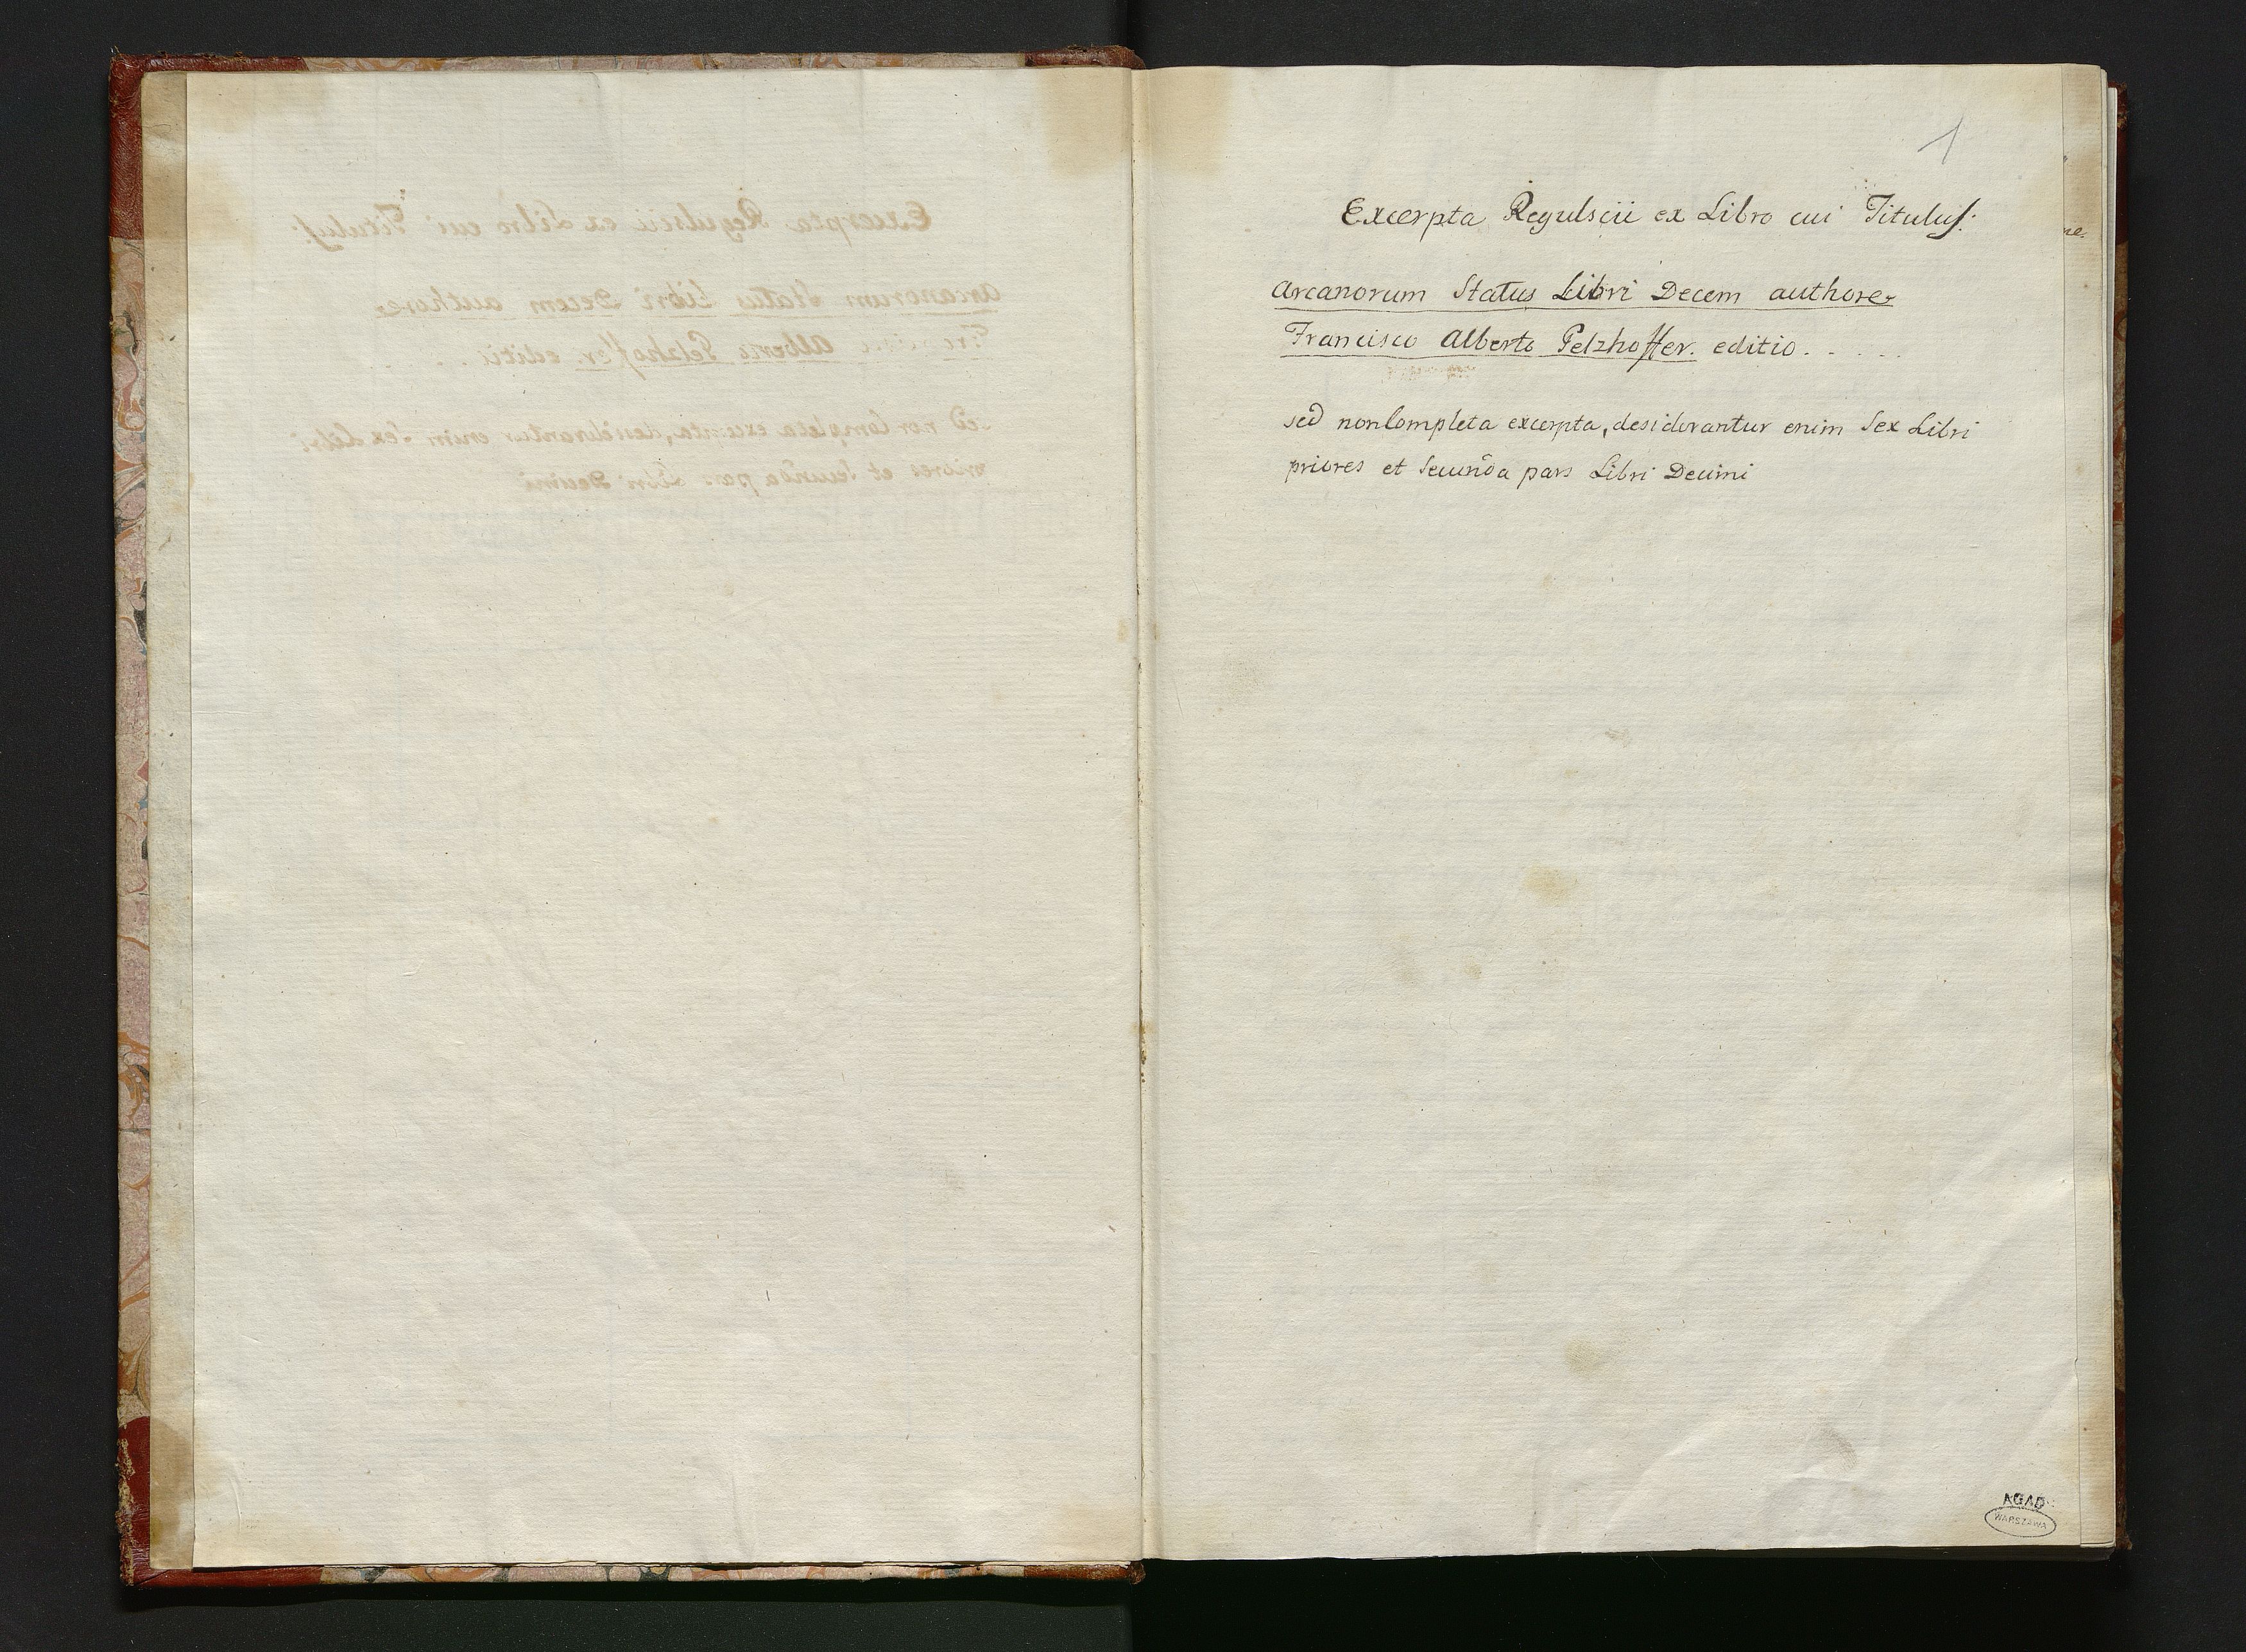 1
Excerpta Regulscii ex Libro cui Titulus:
Arcanorum Status Libri Decem authore
Francisco Alberto Pelzhoffer. editio. . . . .
sed non Completa excerpta, desiderantur enim Sex Libri
priores et Secunda pars Libri Decimi
AGAD
WARSZAWA